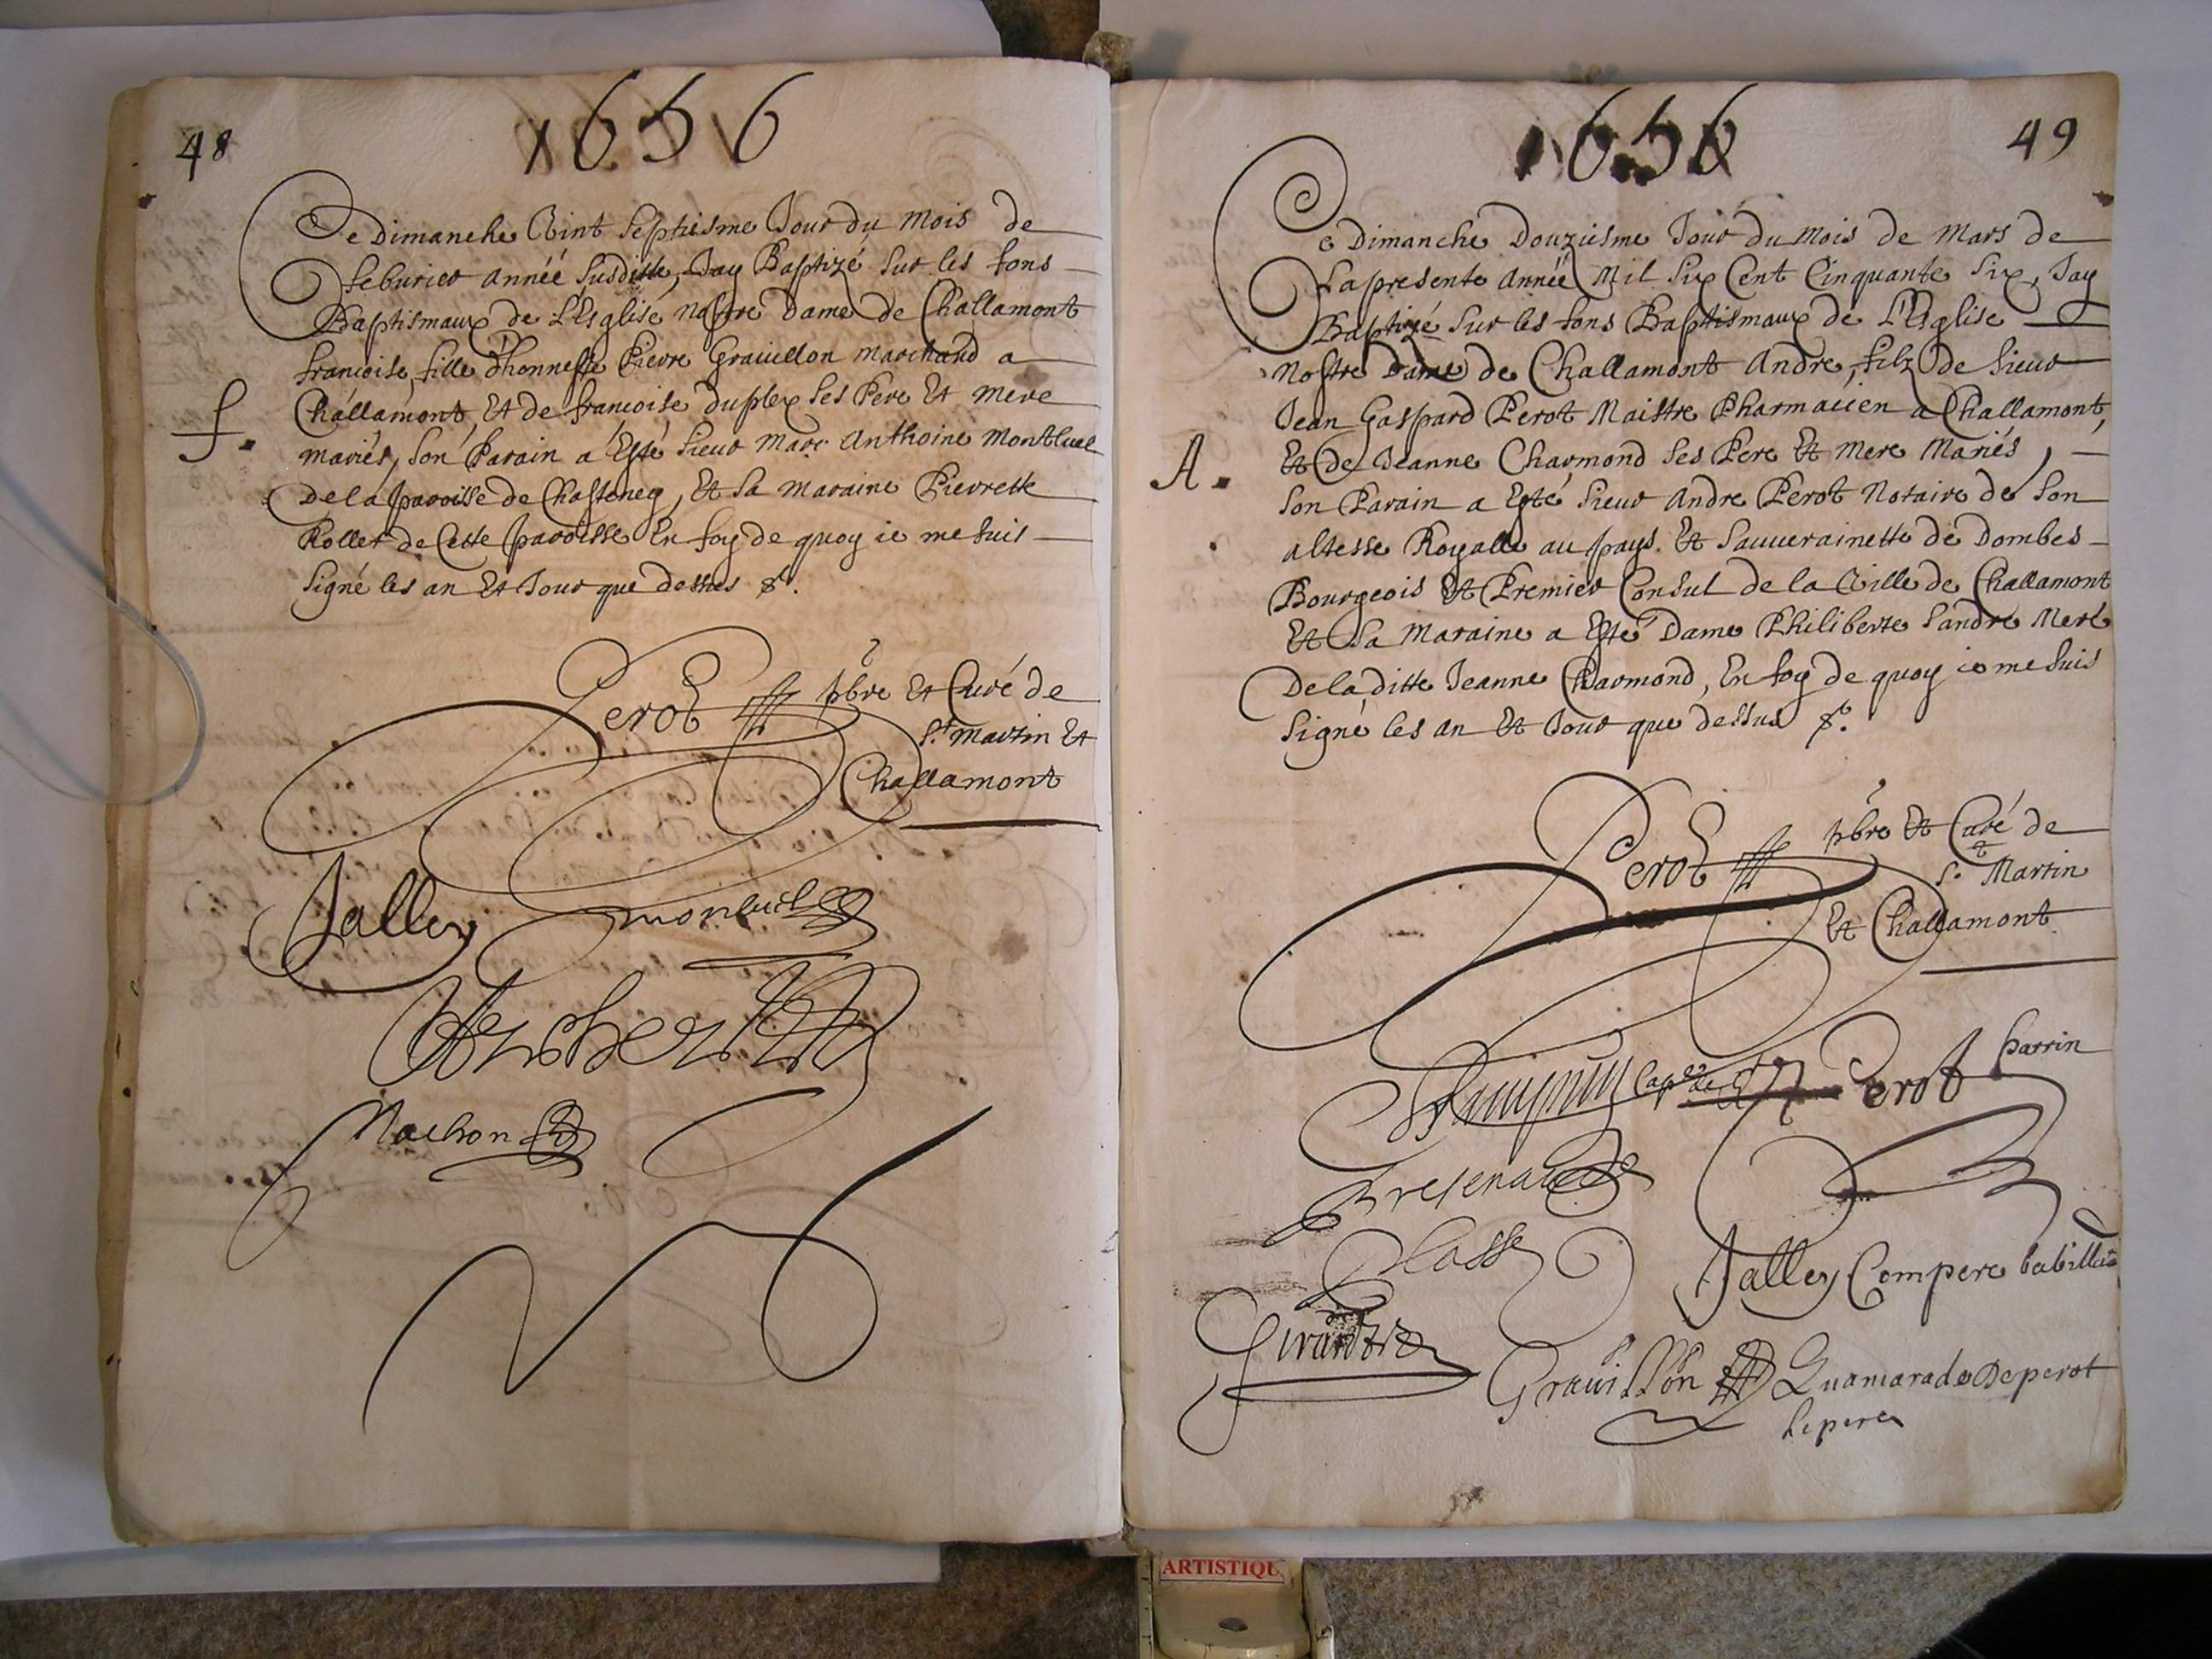 48
1656
Ce Dimanche Vint Septiesme Jour du Mois de
feburier année susditte, Jay Baptizé sur les fons
Baptismaux de L'Esglise nostre Dame de Challamont
francoise, fille d'honneste Pierre Grauellon marchand a
Challamont, Et de francoise duplex ses Pere Et mere
mariés, son Parain a Esté sieur Marc Anthoine Montluel
De la paroisse de Chasteney, Et sa maraine Pierrette
Rollet de Cette paroisse En foy de quoy ie me suis
signé les an Et Jour que dessus &.
f.
Perot pbre Et Curé de
St martin Et
Challamont
Jalley
Nachon
49
1656
Ce Dimanche Douziesme Jour du Mois de Mars de
La presente Année Mil Six Cent Cinquante Six, Jay
Baptizé sur les fons Baptismaux de L'Esglise
Nostre Dame de Challamont Andre, filz de sieur
Jean Gaspard Perot Maistre Pharmacien a Challamont,
Et de Jeanne Charmond ses Pere Et Mere Mariés,
Son Parain a Esté sieur Andre Perot Notaire de son
altesse Royalle au pays Et Sauuerainette de Dombes
Bourgeois Et Premier Consul de la Ville de Challamont
Et sa Maraine a Esté Dame Philiberte Sandre Mere
De la ditte Jeanne Charmond, En foy de quoy ie me suis
Signé les an Et Jour que dessus &.
A.
Perot pbre Et Curé de
St Martin
Et Challamont
Perot parrin
Jalley Compere babillar
Girard
Grauillon
De perot
le pere
ARTISTIQU